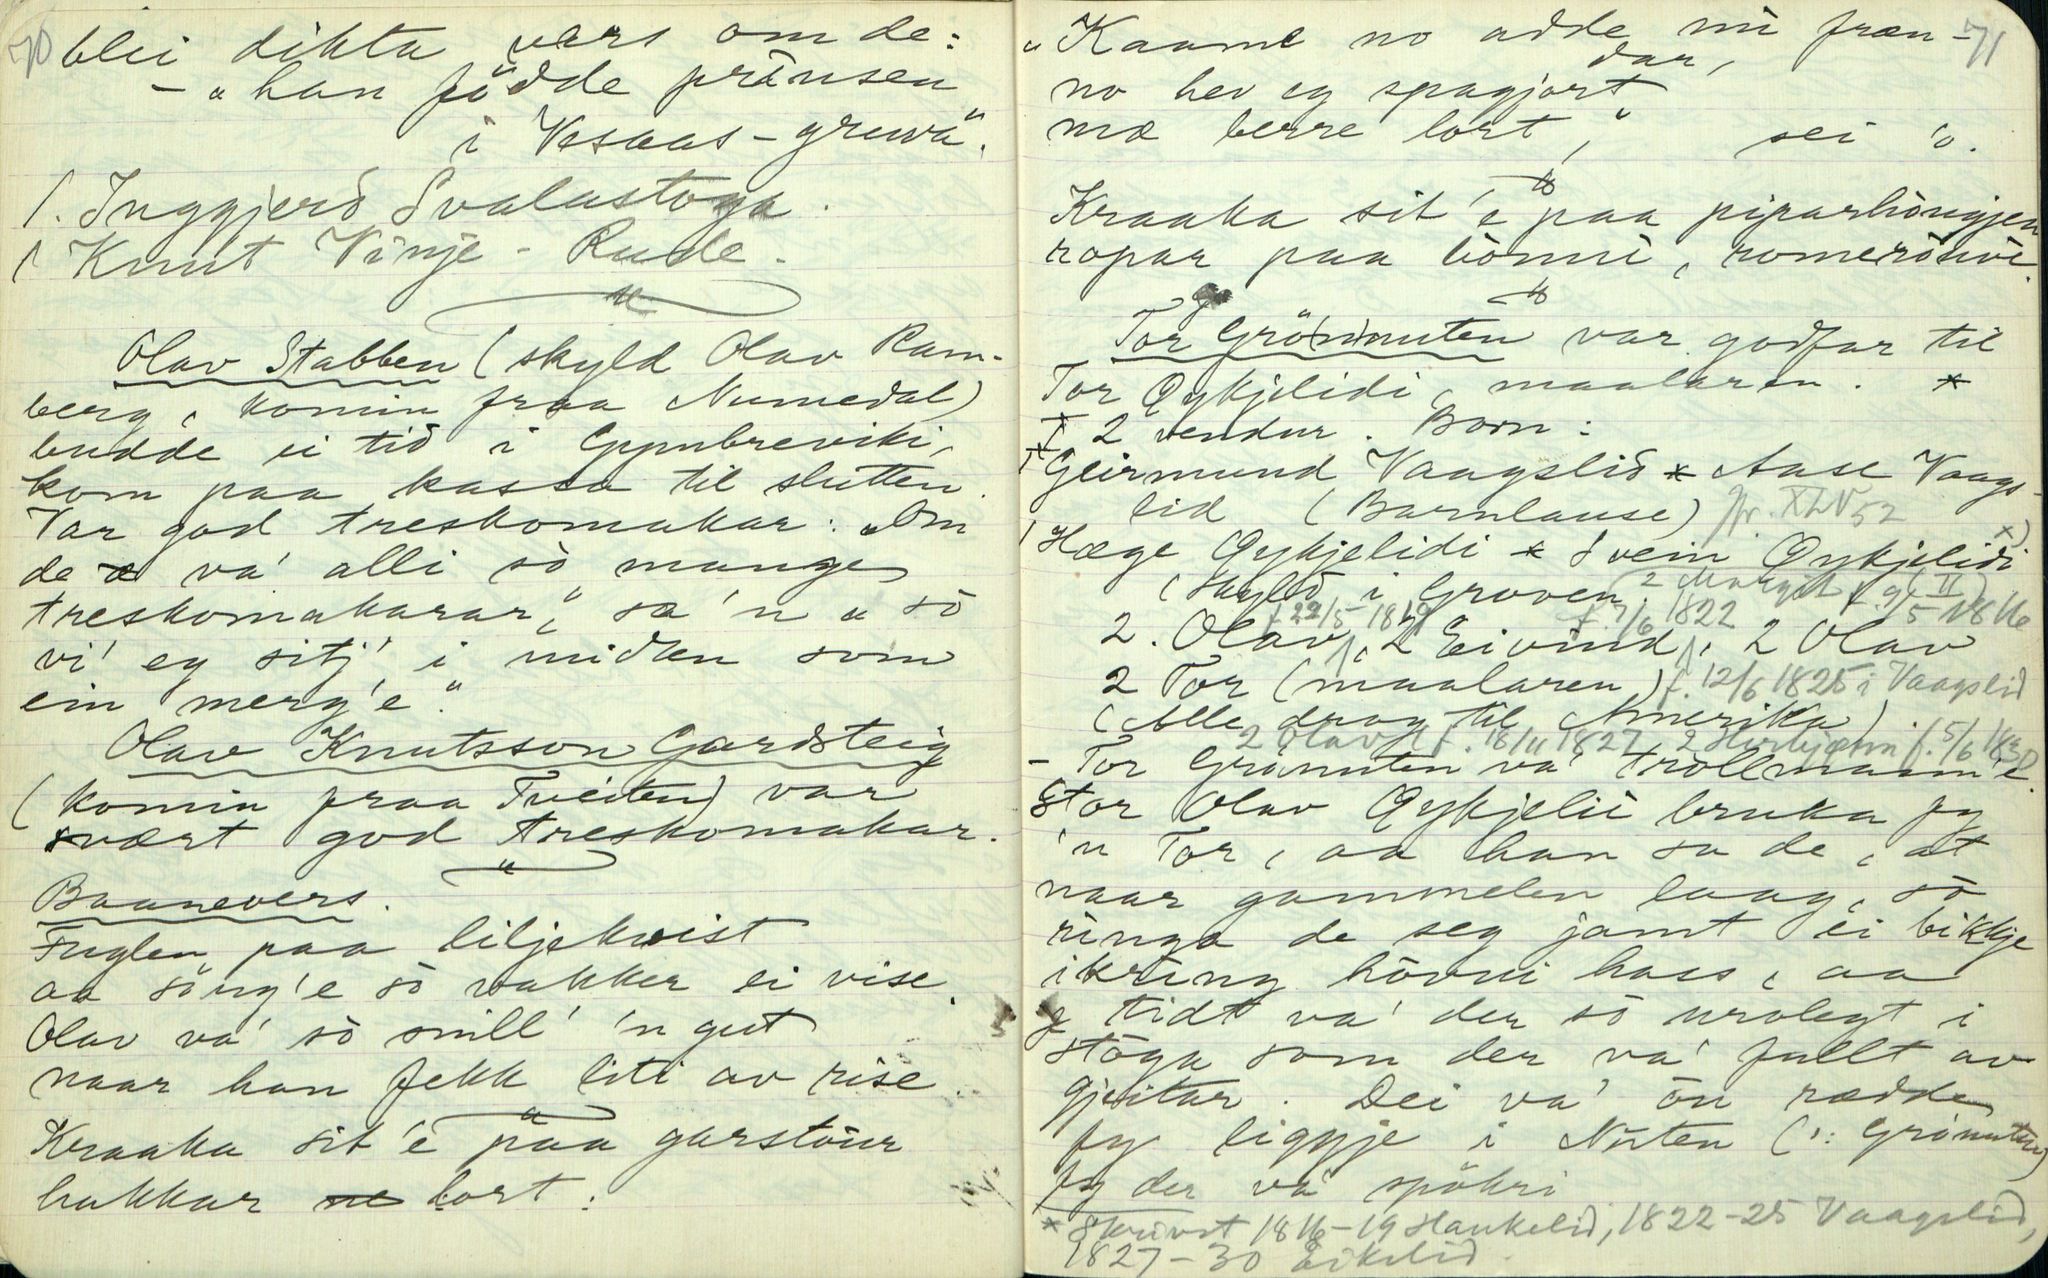 70
blei dikta vers om de:
- „han födde prinsen
i Vesaas-gruvä".
1. Inggjerd Svalastoga.
1 Knut Vinje - Rude.
Olav Stabben (skyld Olav Ram-
berg, komin fraa Numedal)
budde ei tid i Gymbreviki,
kom paa kassa til slutten.
Var god treskomakar: „Om
de va' alli so mange
treskomakarar," sa 'n „so
vi' eg sitj' i midten som
ein merg'e".
Olav Knutsson Gardsteig
(komin fraa Tveiten) var
svært god treskomakar.
Baanevers.
Fuglen paa liljekvist
aa söng'e so vakker ei vise.
Olav va' so snill' 'n gut
naar han fekk liti av rise.
Kraaka sit'e paa garstaur
hakkar lort.
71
„Kaame no adde mi fræn-
dar,
no hev eg spagjort
mæ berre lort," sei 'o.
Kraaka sit'e paa piparhöugjen
ropar paa bonni, romeröuvi.
Tor Grönnuten var godfar til
Tor Øykjelidi, maalaren. *
2 vendur. Born:
1 Geirmund Vaagslid * Aase Vaags-
lid (Barnlause) Jfr. XLV 52
1 Hæge Øykjelidi * Svein Øykjelidi x)
(Skyld i Groven. 2 Margit f. 9/5 1816 (II)
f. 22/5 1819 f. 7/6 1822
2. Olav, 2 Eivind, 2 Olav
2 Tor (maalaren) f. 12/6 1825 i Vaagslid
(Alle drog til Amerika).
2 Olav f. 18/11 1827 2 f. 5/6 1830
- Tor Grönuten va' trollmann'e.
Stor Olav Øykjelii bruka fy
'n Tor, aa han sa de, at
naar gammelen laag, so
ringa de seg jamt ei bikkje
ikring hovui hass, aa
tidt va' der so urolegt i
stoga som der va' fullt av
gjeitar. Dei va' ou rædde
fy liggje i Nuten (ɔ: Grönuten)
fy der va' spökri
* Skrivst 1816-19 Haukelid, 1822-25 Vaagslid,
1827-30 Eikelid.